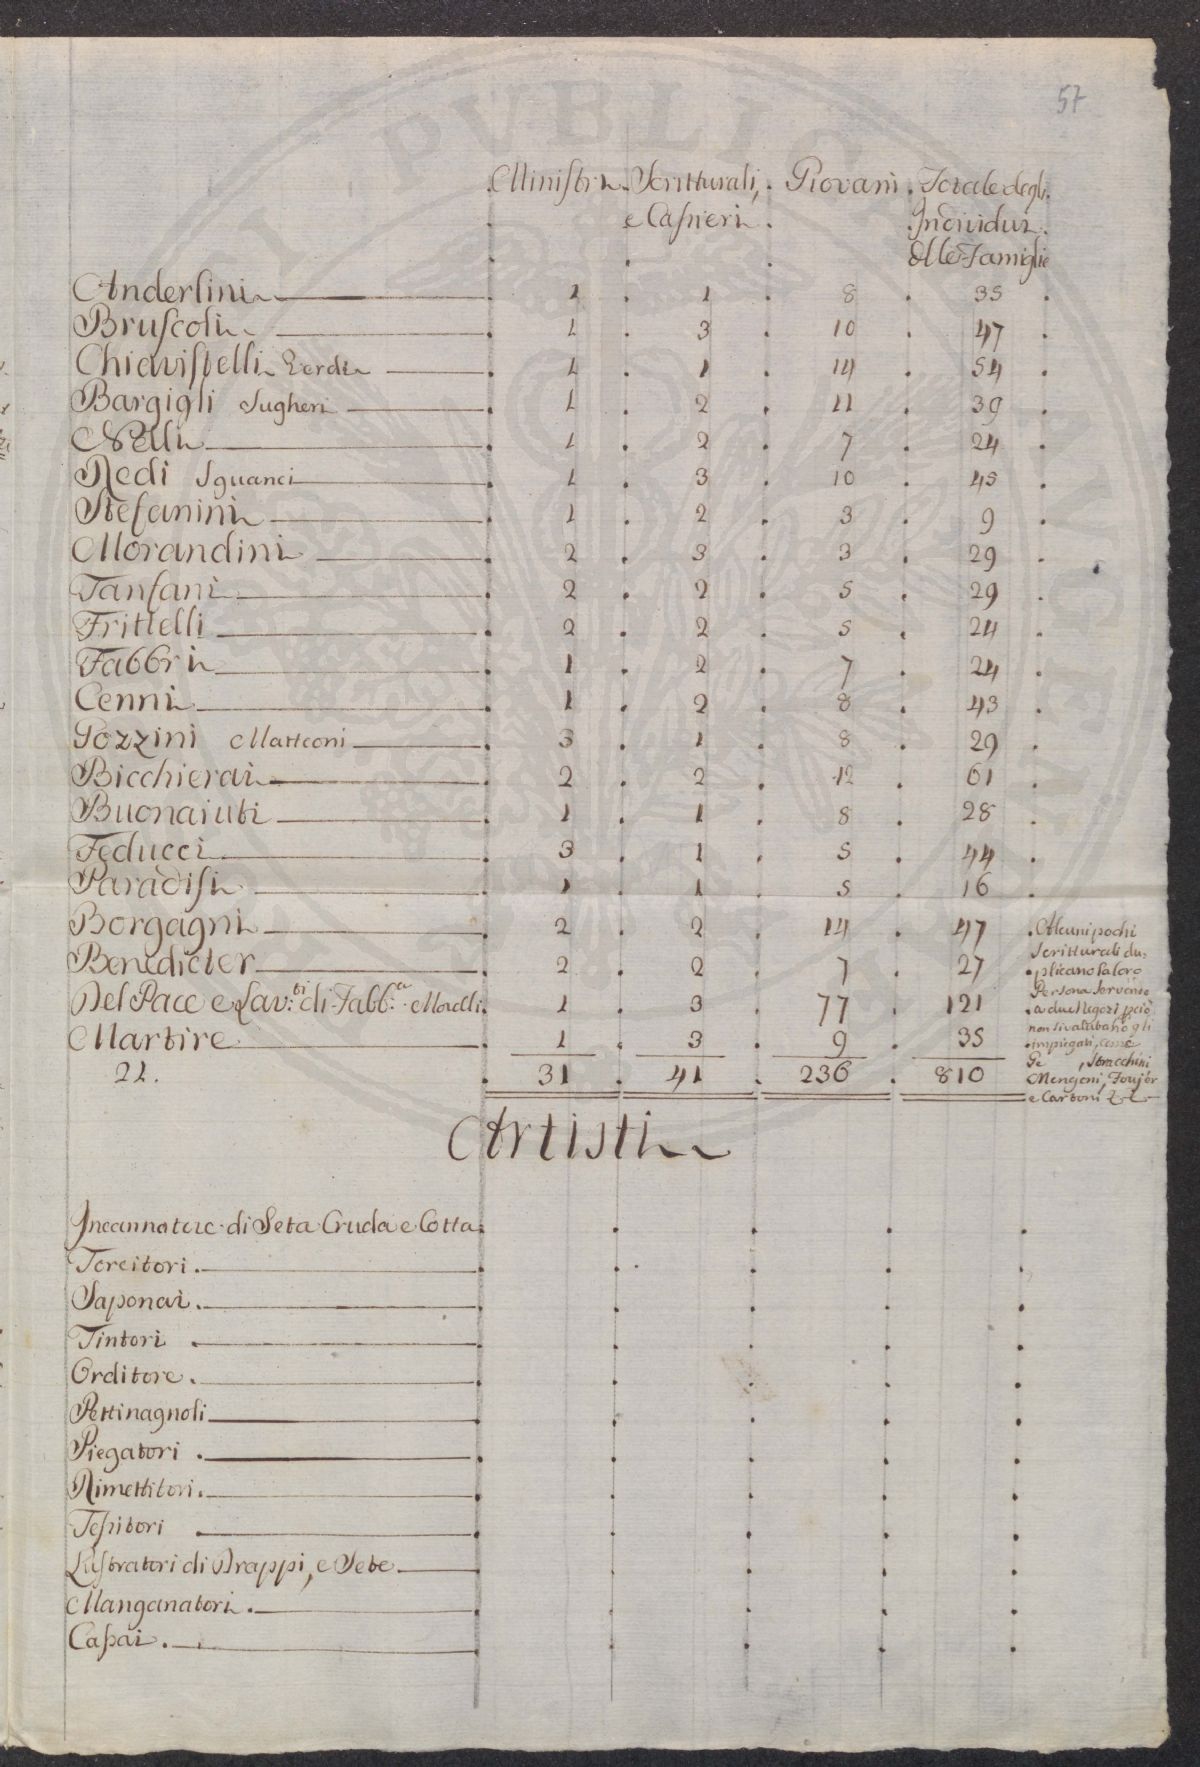 57
Ministri. Scritturali, Giovani. Totale degli
e Cassieri Individui
delle Famiglie
Anderlini 1 1 8 35
Bruscoli 1 3 10 47
Chiavistelli Verdi 1 1 14 54
Bargigli Sugheri 1 2 11 39
Nelli 1 2 7 24
Redi Sguanci 1 3 10 45
Stefanini 1 2 3 9
Morandini 2 3 3 29
Tanfani 2 2 5 29
Frittelli 2 2 5 24
Fabbri 1 2 7 24
Cenni 1 2 8 43
Pozzini Matteoni 3 1 8 29
Bicchierai 2 2 12 61
Buonaiuti 1 1 8 28
Feducci 3 1 5 44
Paradisi 1 1 5 16
Borgagni 2 2 14 47
Benedicter 2 2 7 27
Del Pace e Lav.ti di Fabb.ca Morelli 1 3 77 121
Martire 1 3 9 35
21. 31 41 236 810
Alcuni pochi
Scritturali du=
plicano la loro
Persona servente
a due Negozi però
non si valutano gli
impiegati, come
Stracchini
Mengoni,
e Cartoni
Artisti
Incannatore di Seta Cruda e Cotta
Torcitori.
Saponai.
Tintori
Orditore.
Pettinagnoli
Piegatori.
Rimettitori.
Tessitori
Lustratori di Drappi, e Sete
Manganatori.
Cassai.